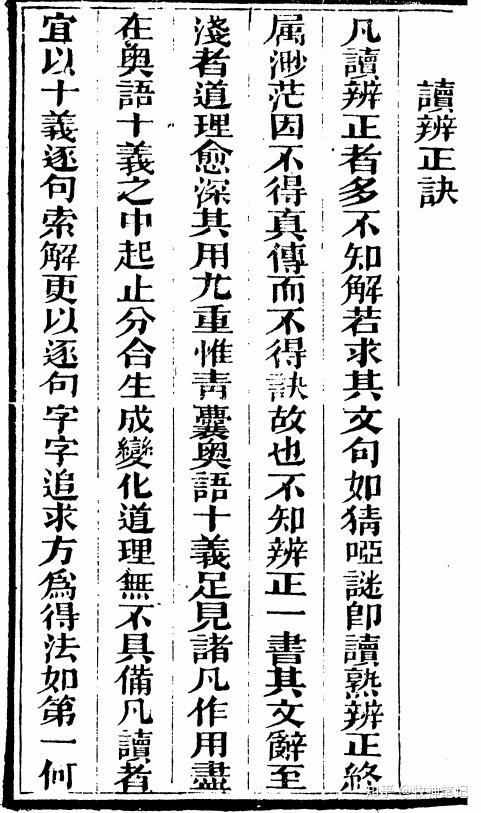 讀辨正訣
凡讀辨正者多不知解若求其文句如猜啞謎卽讀熟辨正終
属渺茫因不得真傳而不得訣故也不知辨正一書其文辭至
淺者道理愈深其用尤重惟青囊奧語十義足見諸凡作用盡
在奧語十義之中起止分合生成變化道理無不具備凡讀者
宜以十義逐句索解更以逐句字字追求方爲得法如第一何
知乎 @牧神筆记